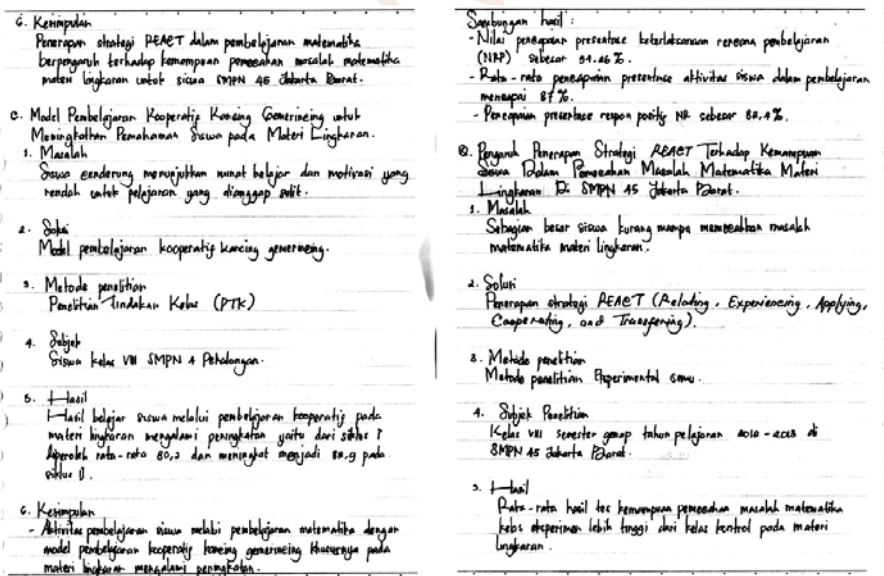 6. Kesimpulan
Penerapan strategi REACT dalam pembelajaran matematika
berpengaruh terhadap kemampuan pemecahan masalah matematika
materi lingkaran untuk siswa SMPN 45 Jakarta Barat.
C. Model Pembelajaran Kooperatif Kancing Gemerincing untuk
Meningkatkan Pemahaman Siswa pada Materi Lingkaran.
1. Masalah
Siswa cenderung menunjukkan minat belajar dan motivasi yang
rendah untuk pelajaran yang dianggap sulit.
2. Solusi
Model pembelajaran kooperatif kancing gemerincing.
3. Metode penelitian
Penelitian Tindakan Kelas (PTK)
4. Subjek
Siswa kelas VIII SMPN 4 Pekalongan.
5. Hasil
Hasil belajar siswa melalui pembelajaran kooperatif pada
materi lingkaran mengalami peningkatan yaitu dari siklus I
diperoleh rata-rata 80,2 dan meningkat menjadi pada
siklus II.
6. Kesimpulan
- Aktivitas pembelajaran siswa melalui pembelajaran matematika dengan
model pembelajaran kooperatif kancing gemerincing khususnya pada
materi lingkaran mengalami peningkatan.
Sambungan hasil :
- Nilai pencapaian presentase keterlaksanaan rencana pembelajaran
(NRP) sebesar
- Rata-rata pencapaian presentase aktivitas siswa dalam pembelajaran
mencapai 87%.
- Pencapaian presentase respon positif NR sebesar 88,4%.
B. Pengaruh Penerapan Strategi REACT Terhadap Kemampuan
Siswa Dalam Pemecahan Masalah Matematika Materi
Lingkaran Di SMPN 45 Jakarta Barat.
1. Masalah
Sebagian besar siswa kurang mampu memecahkan masalah
matematika materi lingkaran.
2. Solusi
Penerapan strategi REACT (Relating, Experiencing, Applying,
Cooperating, and Transfering).
3. Metode penelitian
Metode penelitian Eksperimental semu.
4. Subjek Penelitian
Kelas VIII semester genap tahun pelajaran 2012-2013 di
SMPN 45 Jakarta Barat.
5. Hasil
Rata-rata hasil tes kemampuan pemecahan masalah matematika
kelas eksperimen lebih tinggi dari kelas kontrol pada materi
lingkaran.